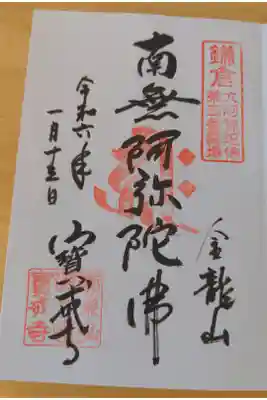 鎌倉
金龍山
南無阿弥陀佛
寶戒寺
令和六年
一月十 日